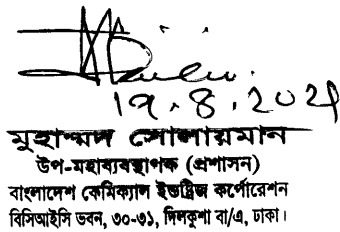 ১৭.৪.২০২৫
মুহাম্মদ সোলায়মান
উপ-মহাব্যবস্থাপক (প্রশাসন)
বাংলাদেশ কেমিক্যাল ইন্ডাস্ট্রিজ কর্পোরেশন
বিসিআইসি ভবন, ৩০-৩১, দিলকুশা বা/এ, ঢাকা।